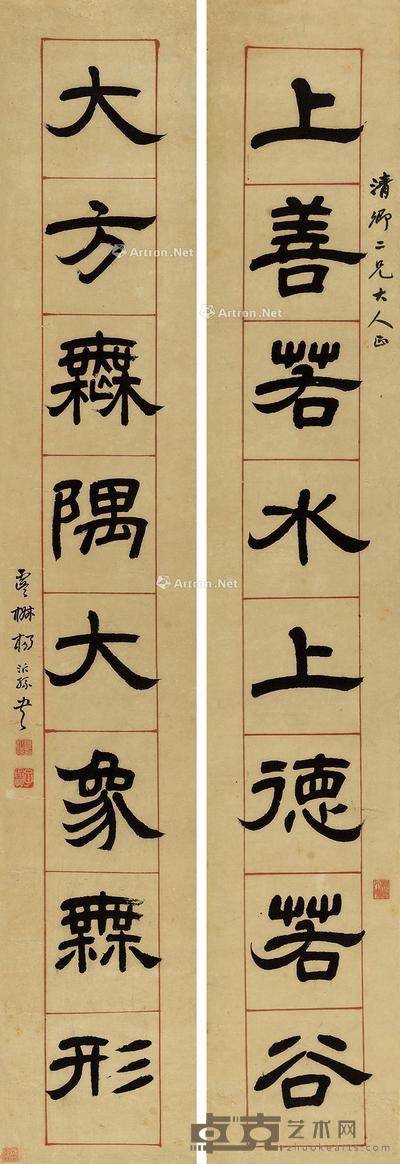 清卿二兄大人正
上善若水上德若谷
大方無隅大象無形
虞楙楊沂孫書
Artron.Net
Artron.Net
Artron.Net
Artron.Net
卓克艺术网